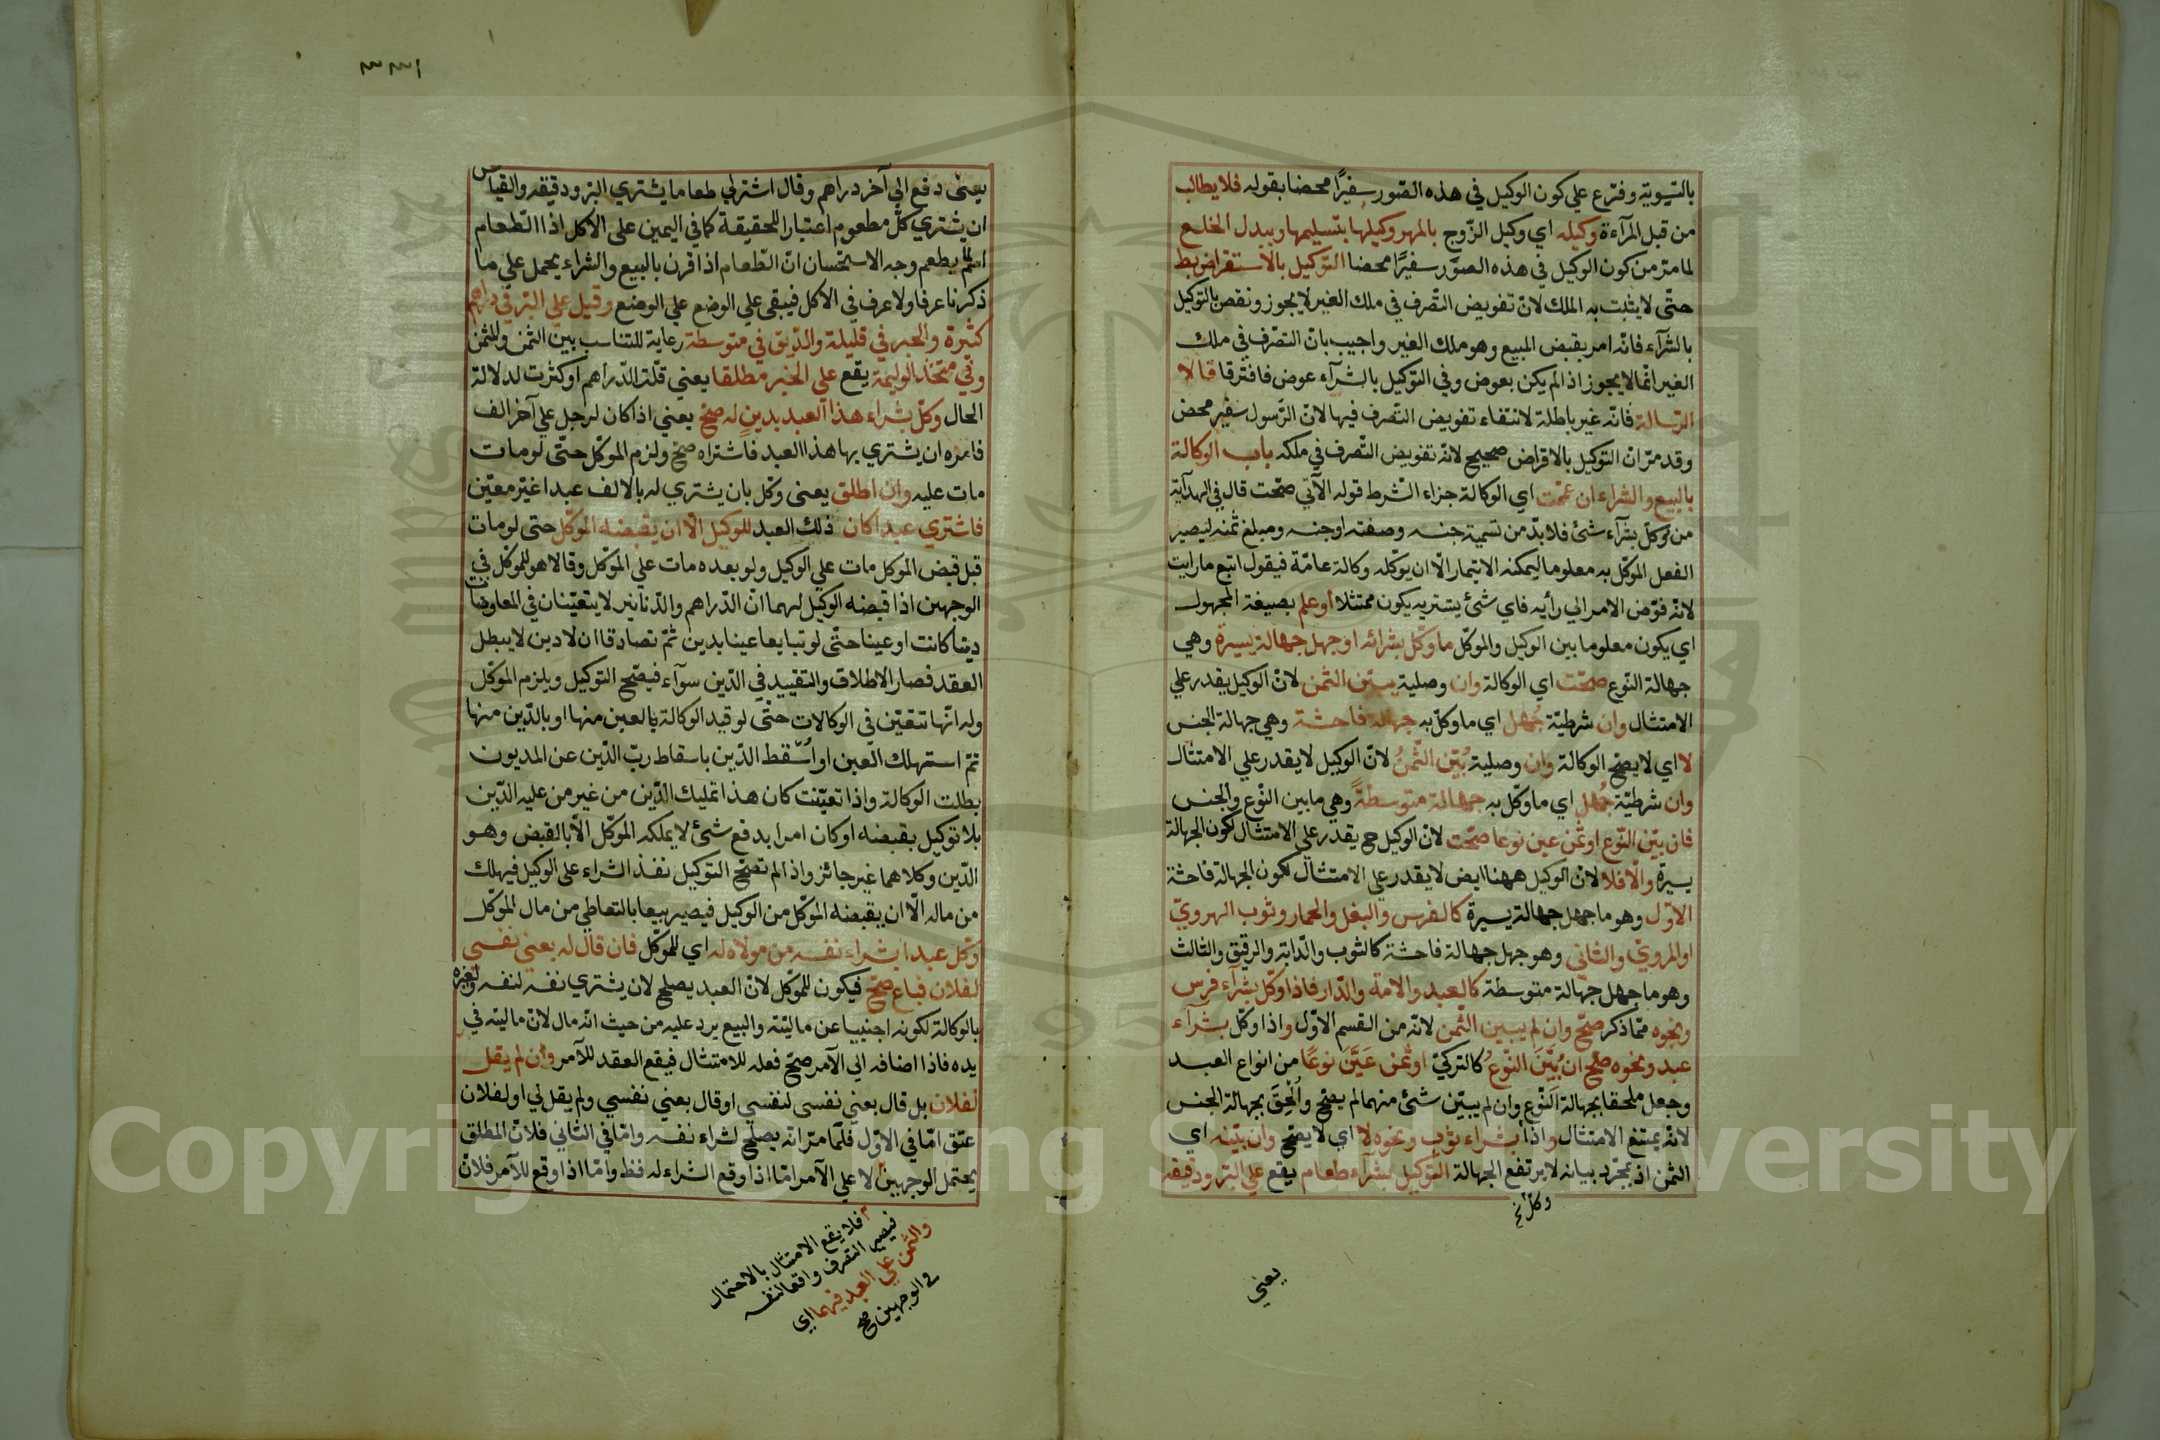 بالتسوية وفرع علي كون الوكيل في هذه الصور سفيرا محضا بقوله فلا يطالب
من قبل المرآءة وكيله اي وكيل الزوج بالمهر وكيلها بتسليمها وببدل الخلع
لما مر من كون الوكيل في هذه الصور سفيرا محضا التوكيل بالاستقراض بط
حتى لا يثبت به الملك لان تفويض التصرف في ملك الغير لا يجوز ونقض بالتوكيل
بالشرآء فانه امر بقبض المبيع وهو ملك الغير واجيب بان التصرف في ملك
الغير انما لا يجوز اذا لم يكن بعوض وفي التوكيل بالشرآء عوض فافترقا لا
الرسالة فانه غير باطلة لانتفاء تفويض التصرف فيها لان الرسول سفير محض
وقد مر ان التوكيل بالاقراض صحيح لانه تفويض التصرف في ملكه باب الوكالة
بالبيع والشراء ان عمت اي الوكالة جزاء الشرط قوله الآتي صحت قال في الهدآية
من وكل بشرآء شئ فلا بد من تسمية جنسه وصفته او جنسه ومبلغ ثمنه ليصير
الفعل الموكل به معلوما ليمكنه الايتمار الا ان يوكله وكالة عامة فيقول ابتع ما رايت
لانه فوض الامر الي رأيه فاي شئ يشتريه يكون ممتثلا او علم بصيغة المجهول
اي يكون معلوما بين الوكيل والموكل ما وكل بشرائه او جهل جهالة يسيرة وهي
جهالة النوع صحت اي الوكالة وان وصلية يبين الثمن لان الوكيل يقدر علي
الامتثال وان شرطية جهل اي ما وكل به جهالة فاحشة وهي جهالة الجنس
لا اي لا يصح الوكالة وان وصلية بين الثمن لان الوكيل لا يقدر علي الامتثال
وان شرطية جهل اي ما وكل به جهالة متوسطة وهي ما بين النوع والجنس
فان بين النوع او ثمن عين نوعا صحت لان الوكيل ح يقدر علي الامتثال لكون الجهالة
يسيرة والا فلا لان الوكيل ههنا ايض لا يقدر علي الامتثال لكون الجهالة فاحشة
الاول وهو ما جهل جهالة يسيرة كالفرس والبغل والحمار وثوب الهروي
او المروي والثاني وهو جهل جهالة فاحشة كالثوب والدابة والرقيق والثالث
وهو ما جهل جهالة متوسطة كالعبد والامة والدار فاذا وكل بشرآء فرس
ونحوه مما ذكر صح وان لم يبين الثمن لانه من القسم الاول واذا وكل بشرآء
عبد ونحوه صح ان بين النوع كالتركي او ثمن عين نوعا من انواع العبد
وجعل ملحقا بجهالة النوع وان لم يبين شئ منهما لم يصح والحق بجهالة الجنس
لانه يمتنع الامتثال واذا بشراء ثوب ونحوه لا اي لا يصح وان بينه اي
الثمن اذ بمجرد بيانه لا يرتفع الجهالة التوكيل بشرآء طعام يقع علي البر ودقيقه
وكل نخ
يعني
٣٣١
يعنى دفع الي آخر دراهم وقال اشتر لي طعاما يشتري البر ودقيقه والقياس
ان يشتري كل مطعوم اعتبارا للحقيقة كما في اليمين على الاكل اذا الطعام
اسم لما يطعم وجه الاستحسان ان الطعام اذا قرن بالبيع والشراء يحمل علي ما
ذكرنا عرفا ولا عرف في الاكل فيبقى علي الوضع علي الوضع وقيل علي البر في دراهم
كثيرة والخبز في قليلة والدقيق في متوسطة رعاية للتناسب بين الثمن والمثمن
وفي متخذ الوليمة يقع على الخبز مطلقا يعني قلت الدراهم او كثرت لدلالة
الحال وكل بشراء هذا العبد بدين له صح يعني اذا كان لرجل علي آخر الف
فامره ان يشتري بها هذا العبد فاشتراه صح ولزم الموكل حتى لو مات
مات عليه وان اطلق يعنى وكل بان يشتري له بالالف عبدا غير معين
فاشتري عبدا كان ذلك العبد للوكيل الا ان يقبضه الموكل حتى لو مات
قبل قبض الموكل مات علي الوكيل ولو بعده مات علي الموكل وقالا هو للموكل في
الوجهين اذا قبضه الوكيل لهما ان الدراهم والدنانير لا يتعينان في المعاوضا
دينا كانت او عينا حتى لو تبايعا عينا بدين ثم تصادقا ان لا دين لا يبطل
العقد فصار الاطلاق والتقييد في الدين سوآء فيصح التوكيل ويلزم الموكل
وله انها تتعين في الوكالات حتى لو قيد الوكالة بالعين منها او بالدين منها
ثم استهلك العين او اسقط الدين باسقاط رب الدين عن المديون
بطلت الوكالة واذا تعينت كان هذا تمليك الدين من غير من عليه الدين
بلا توكيل بقبضه او كان امرا بدفع شئ لا يملكه الموكل الا بالقبض وهو
الدين وكلاهما غير جائز واذا لم تصح التوكيل نفذ الشراء على الوكيل فيهلك
من ماله الا ان يقبضه الموكل من الوكيل فيصير بيعا بالتعاطي من مال الموكل
وكل عبدا بشراء نفسه من مولاه له اي للموكل فان قال له بعنى نفسى
لفلان فباع صح فيكون للموكل لان العبد يصلح لان يشتري نفسه لنفسه ولغيره
بالوكالة لكونه اجنبيا عن ماليته والبيع يرد عليه من حيث انه مال لان ماليته في
يده فاذا اضافه الي الآمر صح فعله للامتثال فيقع العقد للآمر وان لم يقل
لفلان بل قال بعني نفسى لنفسي او قال بعني نفسي ولم يقل لي او لفلان
عتق اما في الاول فلما مر انه يصلح لشراء نفسه واما في الثاني فلان المطلق
يحتمل الوجهين لا علي الآمر اما اذا وقع الشراء له فظ واما اذا وقع للآمر فلان
فلا يقع الامتثال بالاحتمال
فيصير التصرف واقعا لنفسه
والثمن علي العبد فيهما اي
في الوجهين صح